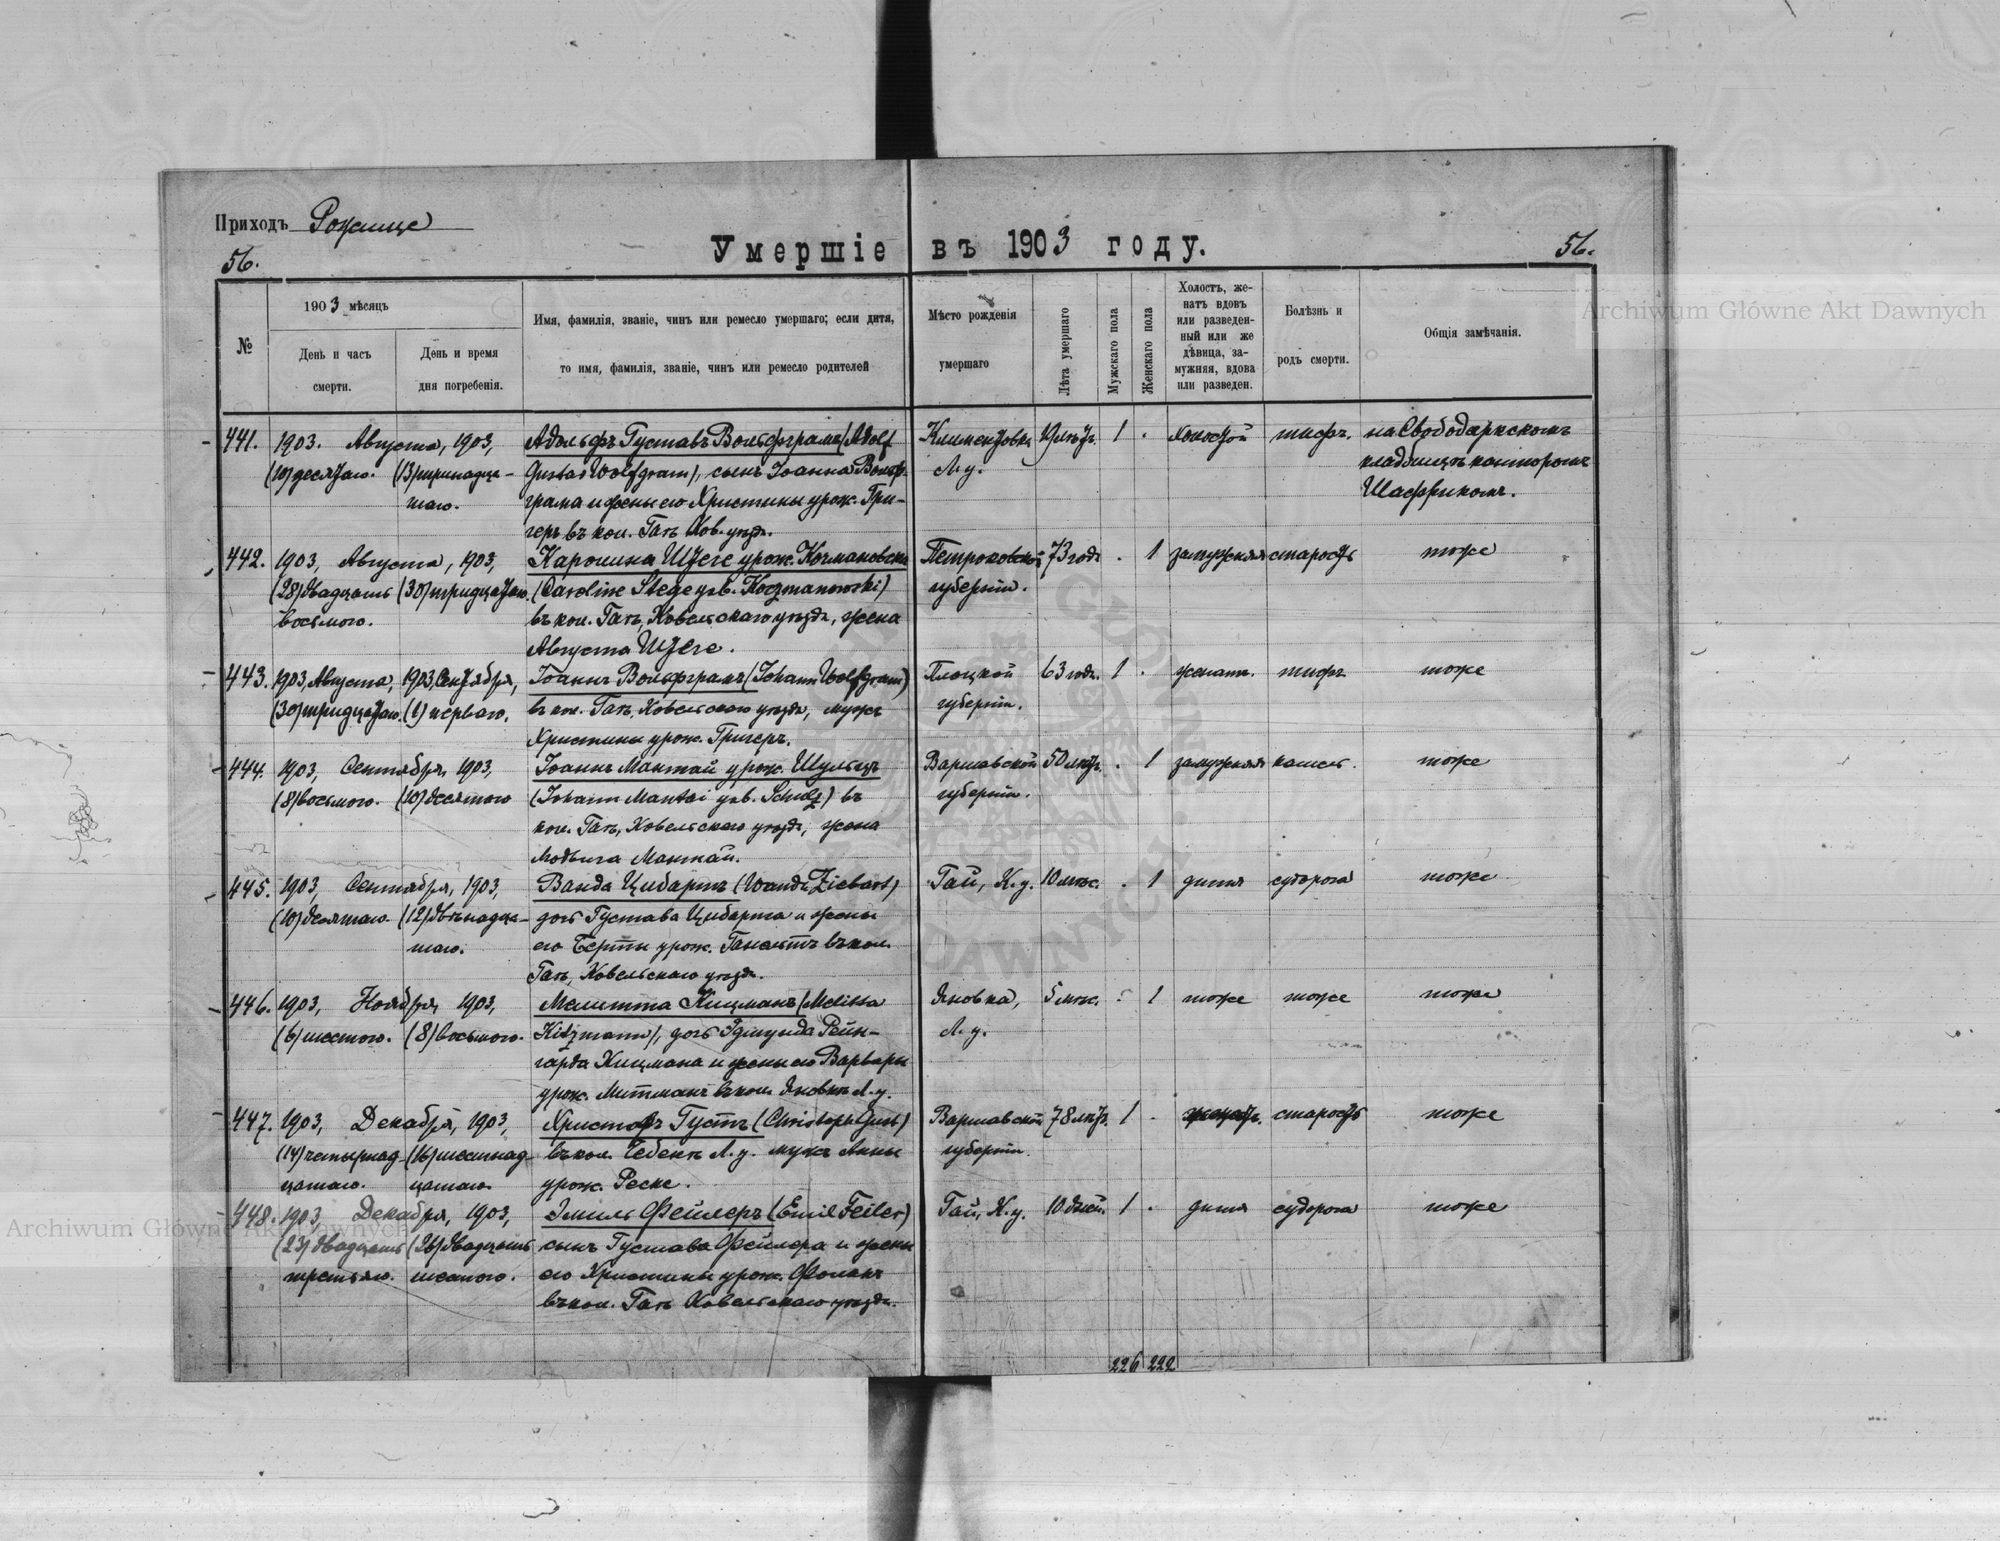 Приходъ Рожище
Умершіе въ 1903 году.
56.
56.
№
1903 мѣсяцъ
День и часъ
смерти.
День и время
дня погребенія.
Имя, фамилія, званіе, чинъ или ремесло умершаго; если дитя,
то имя, фамилія, званіе, чинъ или ремесло родителей
Мѣсто рожденія
умершаго
Лѣта умершаго
Мужскаго пола
Женскаго пола
Холостъ, же-
натъ вдовъ
или разведен-
ный или же
дѣвица, за-
мужняя, вдова
или разведен.
Болѣзнь и
родъ смерти.
Общія замѣчанія.
441. 1903. Августа, 1903, Адольфъ Густавъ Вольфграмъ (Adolf Климентовка 19 лѣтъ. 1 . холостой тифъ. на Свободаркскомъ
(10) десятаго. (13) тринадца- Gustav Wolfgram), сынъ Іоанна Вольф- Л. у. кладбищѣ канторомъ
таго. грама и жены его Христины урож. Гри- Шаффрикомъ.
геръ въ кол. Гать Ков. уѣзда.
442. 1903, Августа, 1903, Каролина Штеге урож. Кочмановска Петроковской 73 года . 1 замужняя старость тоже
(28) двадцать (30) тридцатаго. (Caroline Stege geb. Koczmanowski) губерніи.
восьмого. въ кол. Гать, Ковельскаго уѣзда, жена
Августа Штеге.
443. 1903, Августа, 1903, Сентября, Іоаннъ Вольфграмъ (Johann Wolfgram) Плоцкой 63 года. 1 . женатъ. тифъ тоже
(30) тридцатаго. (1) перваго. въ кол. Гать, Ковельскаго уѣзда, мужъ губерніи.
Христины урож. Григеръ.
444. 1903, Сентября, 1903, Іоаннъ Мантай урож. Шульцъ Варшавской 50 лѣтъ. . 1 замужняя кашель. тоже
(8) восьмого. (10) десятого (Johann Mantai geb. Schulz) въ губерніи.
кол. Гать, Ковельскаго уѣзда, жена
Людвига Мантай.
445. 1903, Сентября, 1903, Ванда Цибартъ (Wanda Ziebart) Гай, К. у. 10 мѣс. . 1 дитя судорога тоже
(10) десятаго. (12) двѣнадца- дочь Густава Цибарта и жены
таго. его Берты урож. въ кол.
Гать, Ковельскаго уѣзда.
446. 1903, Ноября, 1903, Мелитта Кицманъ (Melissa Яновка, 5 мѣс. . 1 тоже тоже тоже
(6) шестого. (8) восьмого. Kitzmann), дочь Эдмунда Рейн- Л. у.
гарда Кицмана и жены его Варвары
урож. Митманъ въ кол. Яновкѣ Л. у.
447. 1903, Декабря, 1903, Христофъ Густъ (Christoph Gust) Варшавской 78 лѣтъ. 1 . старость тоже
(14) четырнад- (16) шестнад- въ кол. Чебень Л. у. мужъ Анны губерніи.
цатаго. цатаго. урож. Реске.
448. 1903, Декабря, 1903, Эмиль Фейлеръ (Emil Feiler) Гай, К. у. 10 дней. 1 . дитя судорога тоже
(23) двадцать (26) двадцать сынъ Густава Фейлера и жены
третьяго. шестого. его Христины урож. Фолькъ
въ кол. Гать Ковельскаго уѣзда.
226 222
Archiwum Główne Akt Dawnych
Archiwum Główne Akt Dawnych